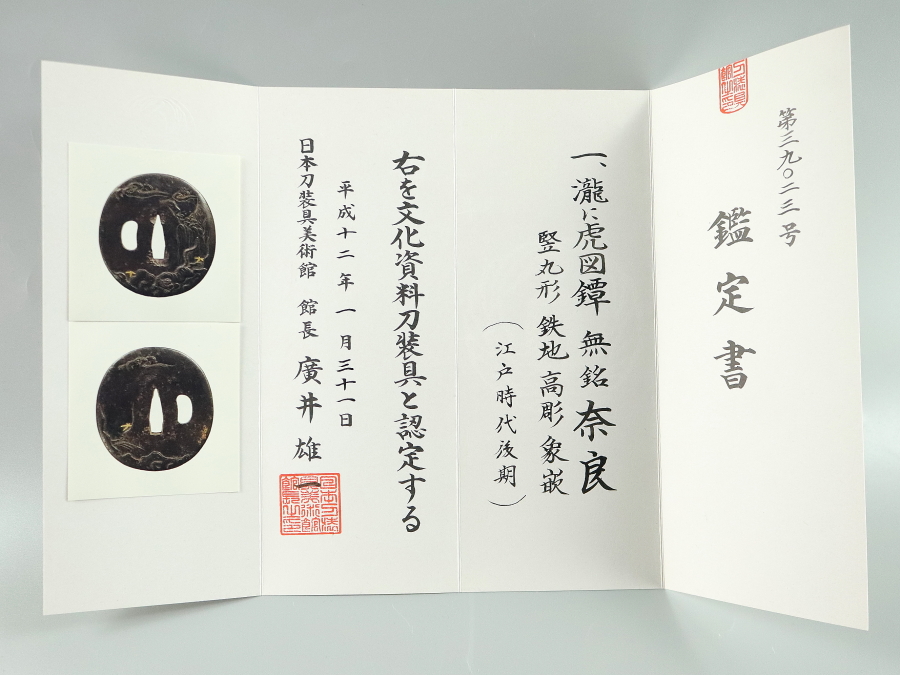 第三九〇二三号
鑑定書
一、瀧に虎図鐔 無銘 奈良
竪丸形 鉄地 高彫 象嵌
(江戸時代後期)
右を文化資料刀装具と認定する
平成十二年一月三十一日
日本刀装具美術館 館長 廣井雄一